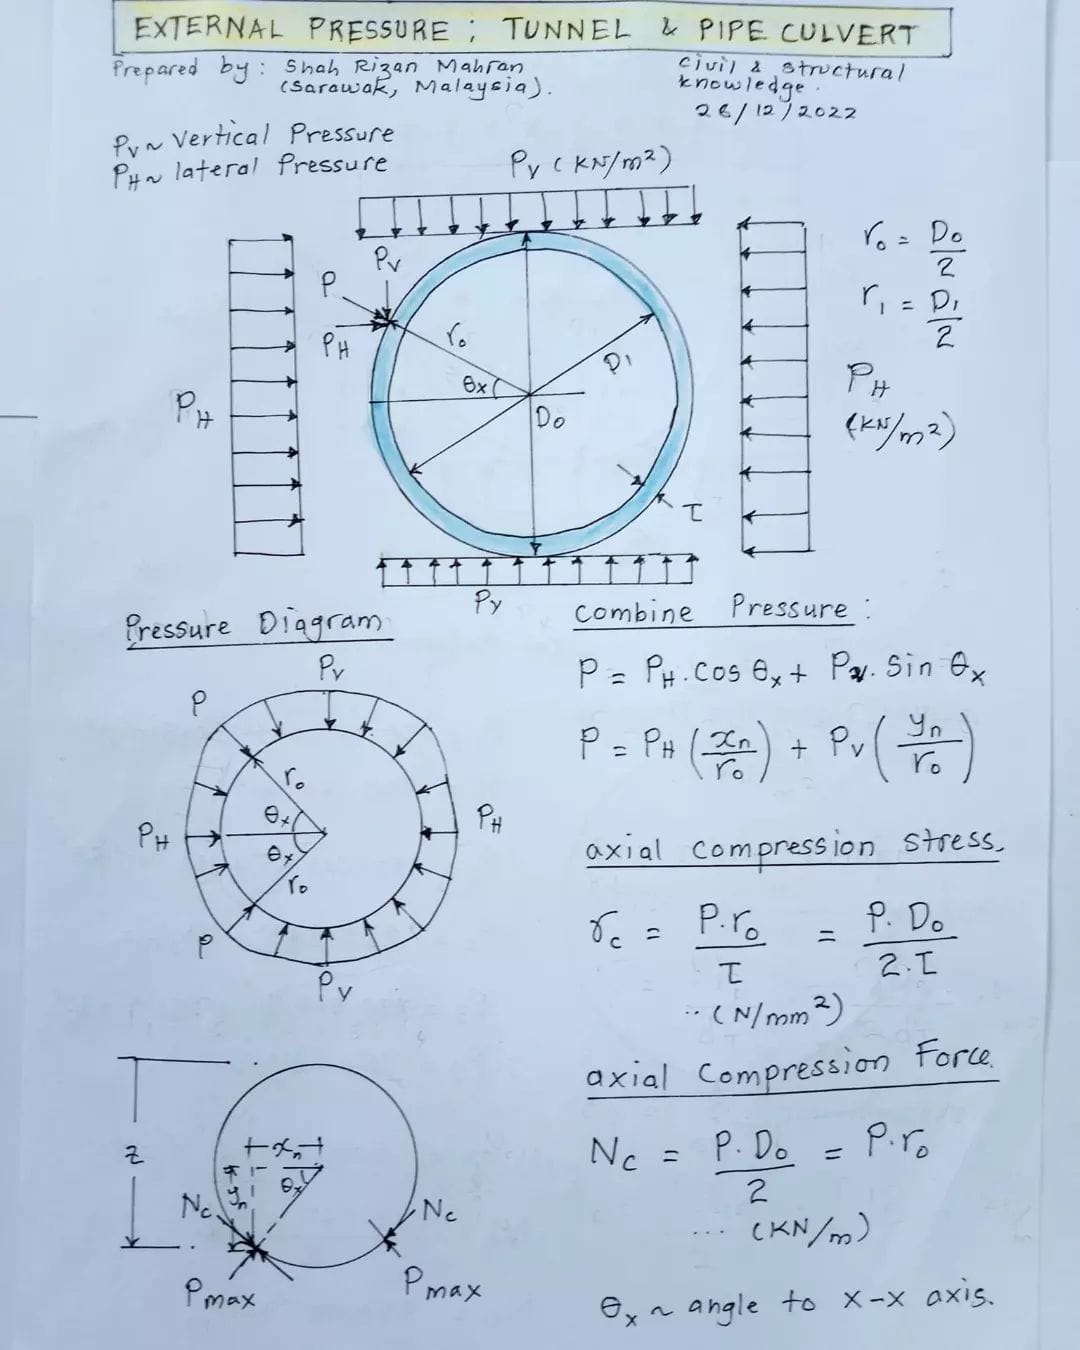 EXTERNAL PRESSURE ; TUNNEL & PIPE CULVERT
Prepared by : Shah Rizan Mahran
(Sarawak, Malaysia).
civil & structural
knowledge.
26/12/2022
Pv ~ Vertical Pressure
PH ~ lateral Pressure
Pv (KN/m²)
Pv
P
PH
ro
θx
D1
Do
T
PH
Pv
ro = Do/2
r1 = D1/2
PH
(KN/m²)
Pressure Diagram
Pv
P
ro
θx
PH
PH
θx
ro
P
Pv
Combine Pressure :
P = PH . cos θx + Pv. Sin θx
P = PH (xn/ro) + Pv (yn/ro)
axial compression stress.
σc = P.ro/T = P. Do/2.T
.. (N/mm²)
axial Compression Force.
Nc = P. Do/2 = P.ro
... (KN/m)
θx ~ angle to x-x axis.
z
xn
yn
θx
Nc
Nc
Pmax
Pmax